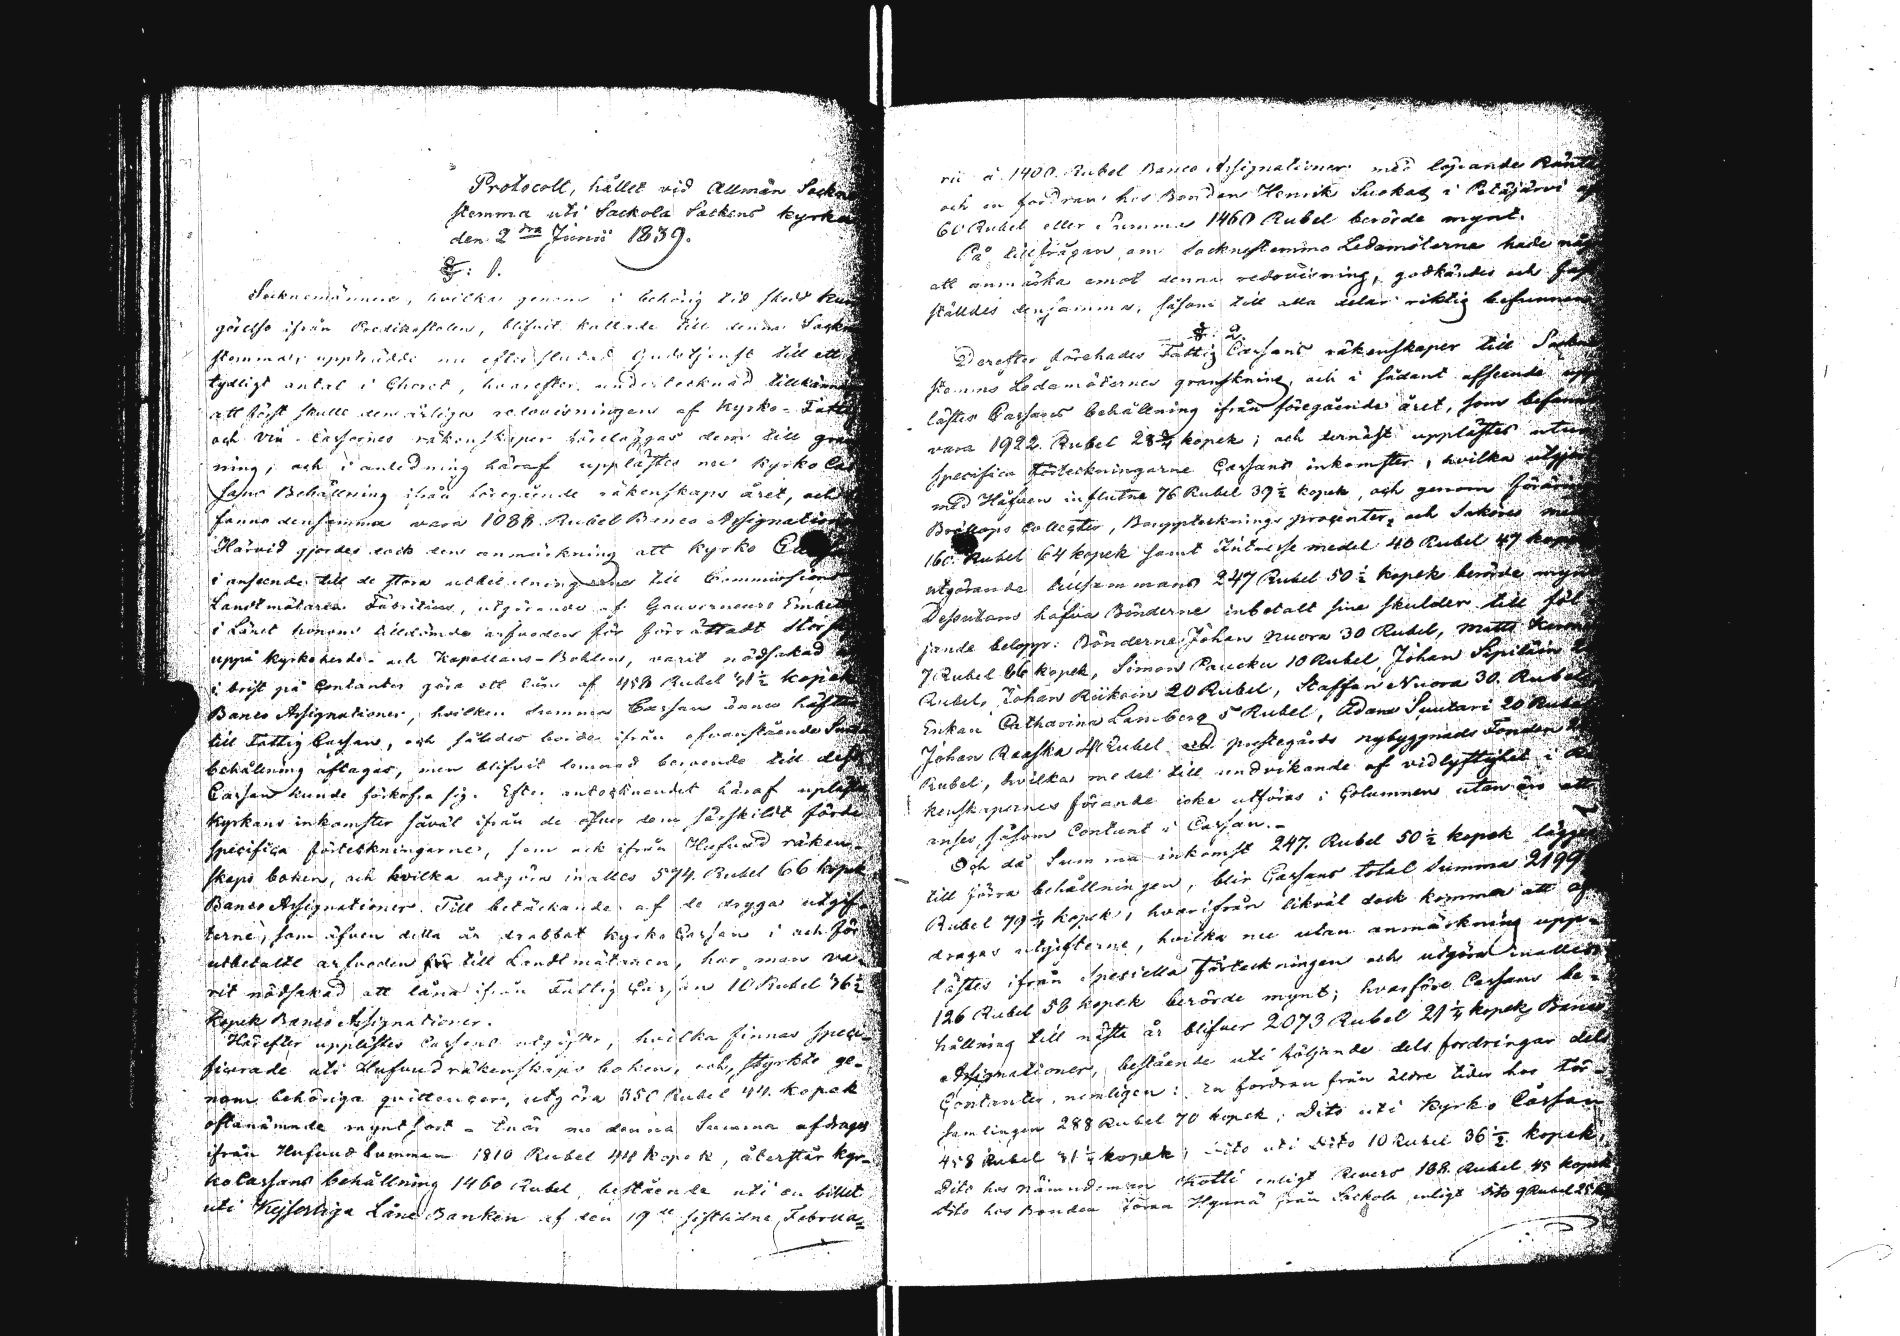 Protocoll, hållet vid Allmän Sockne
stemma uti Sackola Sockens kyrka
den 2dra Junii 1839.
§: 1.
Socknemännene, hvilka genom i behörig tid skedt kun
görelse ifrån Predikostolen, blifvit kallade till denna Sockne
stemma, uppträdde nu efter slutad Gudstjenst till ett
tydligt antal i Choret, hvarefter undertecknad tillkänna
att först skulle den årliga redovisningen af Kyrko- Fattig
och Vin-Cassornes räkenskaper föreläggas dem till gran
ning, och i anledning häraf upplästes nu Kyrko Cas
sans Behållning ifrån föregående räkenskaps året, och
fanns densamma vara 1088 Rubel Banco Assignationer
Härvid gjordes dock den anmärkning att Kyrko
i anseende till de stora utbetalningarne till Commissions
Landtmätaren Fabritius, utgörande af Gouverneurs Embetet
i Länet honom tilldömde arfvoden för förrättadt Storskif
uppå Kyrkoherde- och Kapellans-Bohlen, varit nödsakad
i brist på Contanter göra ett lån af 458 Rubel 31½ kopek
Banco Assignationer, hvilken summa Cassan ännu häftar
till Fattig Cassan, och således borde ifrån ofvanstående Summa
behållning aftagas, men blifvit lemnad beroende till dess
Cassan kunde förkofra sig. Efter antecknandet häraf upplästes
Kyrkans inkomster såväl ifrån de öfver dem särskildt förde
specifica förteckningarne, som ock ifrån Hufvud räken-
skaps boken, och hvilka utgöra inalles 574 Rubel 66 kopek
Banco Assignationer. Till betäckande af de dryga utgif-
terne, som äfven detta år drabbat Kyrko Cassan i och för
utbetalte arfvoden till Landtmätaren, har man va-
rit nödsakad att låna ifrån Fattig Cassan 10 Rubel 36½
kopek Banco Assignationer.
Härefter upplästes Cassans utgifter, hvilka finnas speci-
ficerade uti Hufvud räkenskaps boken, och, styrkte ge-
nom behöriga quittencer, utgöra 350 Rubel 44 kopek
oftanämnde myntsort - Enär nu denna Summa afdrages
ifrån Hufvud summan 1810 Rubel 44 kopek, återstår Kyr-
ko Cassans behållning 1460 Rubel, bestående uti en billet
uti Kejserliga Låne Banken af den 19de sistledne Februa-
rii å 1400 Rubel Banco Assignationer med löpande Ränta
och en fordran hos Bonden Henrik Suokas i Petäjärvi af
60 Rubel eller Summa 1460 Rubel berörde mynt.
På tillfrågan om Socknestemmo Ledamöterne hade någ
att anmärka emot denna redovisning, godkändes och fast
ställdes densamma, såsom till alla delar riktig befunnen
§: 2.
Derefter förehades Fattig Cassans räkenskaper till Sockne
stemmo Ledamöternes granskning, och i sådant afseende upp
lästes Cassans behållning ifrån föregående året, som befanns
vara 1922 Rubel 28¾ kopek; och dernäst upplästes utur
specifica förteckningarne Cassans inkomster, hvilka utgöra
med Håfven influtne 76 Rubel 39½ kopek, och genom
Bröllops Collecter, Bouppteknings procenter, och Sakören
160 Rubel 64 kopek samt Intresse medel 40 Rubel 47 kopek
utgörande tillsammans 247 Rubel 50½ kopek berörde mynt
Dessutom hafva Bönderne inbetalt sine skulder till föl-
jande belopp: Bönderne Johan Nuora 30 Rubel, Matts
7 Rubel 66 kopek, Simon Paucku 10 Rubel, Johan
Rubel, Johan Räiköin 20 Rubel, Staffan Nuora 30 Rubel
Enkan Catharina Lamberg 5 Rubel, Adam Suutari 20 Rubel
Johan Raaska 4 Rubel och prestegårds nybyggnads Fonden
Rubel, hvilka medel till undvikande af vidlyftighet i Rä
kenskapernes förande icke utföras i Columnen utan
anses såsom Contant i Cassan.-
Och då Summa inkomst 247 Rubel 50½ kopek lägges
till förra behållningen, blir Cassans total Summa 2199
Rubel 79¼ kopek, hvarifrån likväl dock komma att af
dragas utgifterne, hvilka nu utan anmärkning upp-
lästes ifrån Speciella förteckningen och utgöra inalles
126 Rubel 58 kopek berörde mynt; hvarföre Cassans be-
hållning till näste år blifver 2073 Rubel 21¼ kopek Banco
Assignationer, bestående uti följande dels fordringar dels
Contanter, nemligen: en fordran från äldre tider hos För-
samlingen 288 Rubel 70 kopek; Dito uti Kyrko Cassan
458 Rubel 31½ kopek; Dito uti Dito 10 Rubel 36½ kopek;
Dito hos Nämndeman Kotti enligt Revers 188 Rubel 45 kopek
Dito hos Bonden Hynnä från Sackola enligt Dito 9 Rubel 25